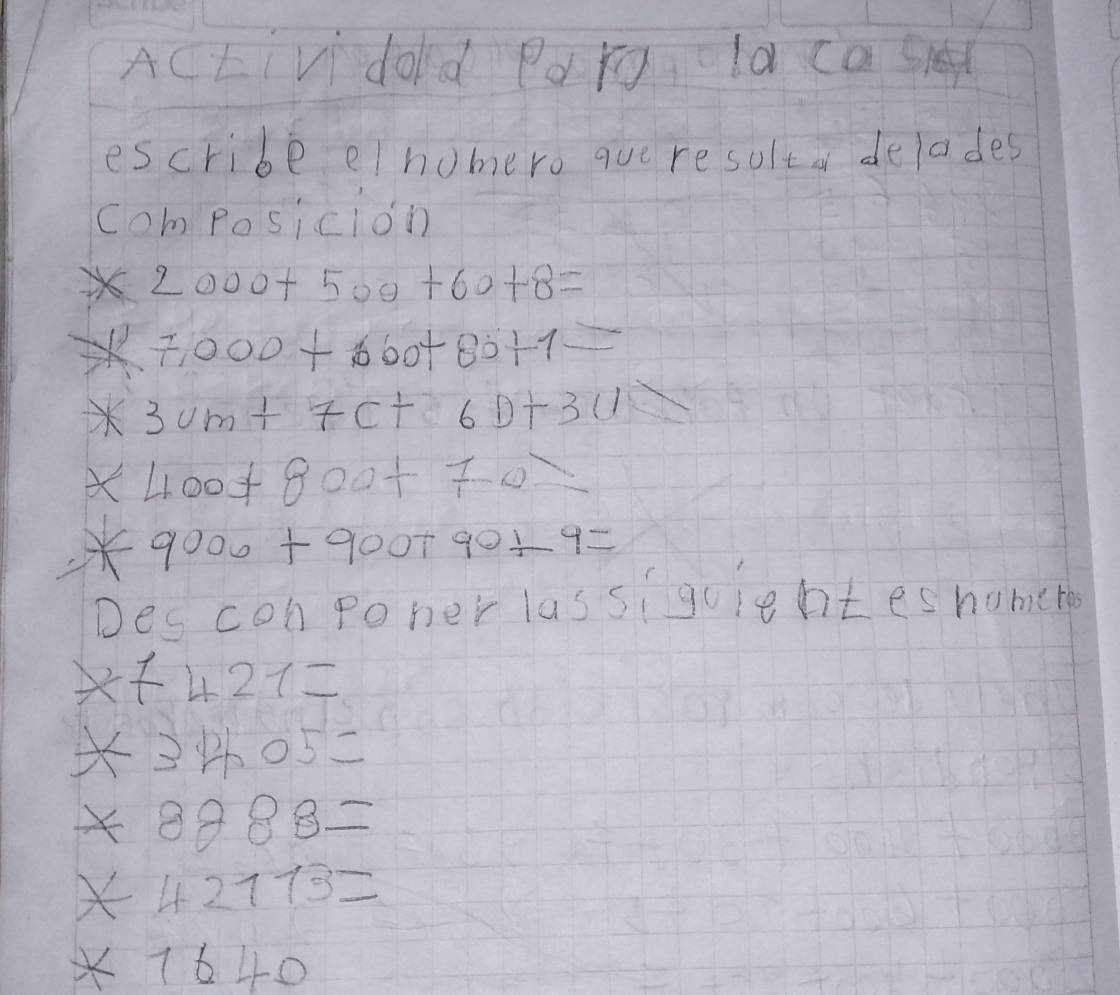 Actividad Para la casa
escribe el numero que resulta de la des
composición
* 2000+ 500 +60+8=
* 7,000 + 660+ 80+1=
* 3 Um + 7 C + 6 D + 3 U =
* 400+ 800+ 70=
* 9000 + 900+ 90+ 9=
Desconponer las siguientes numeros
* 7421=
* 3405=
* 8888=
* 42113=
* 1640